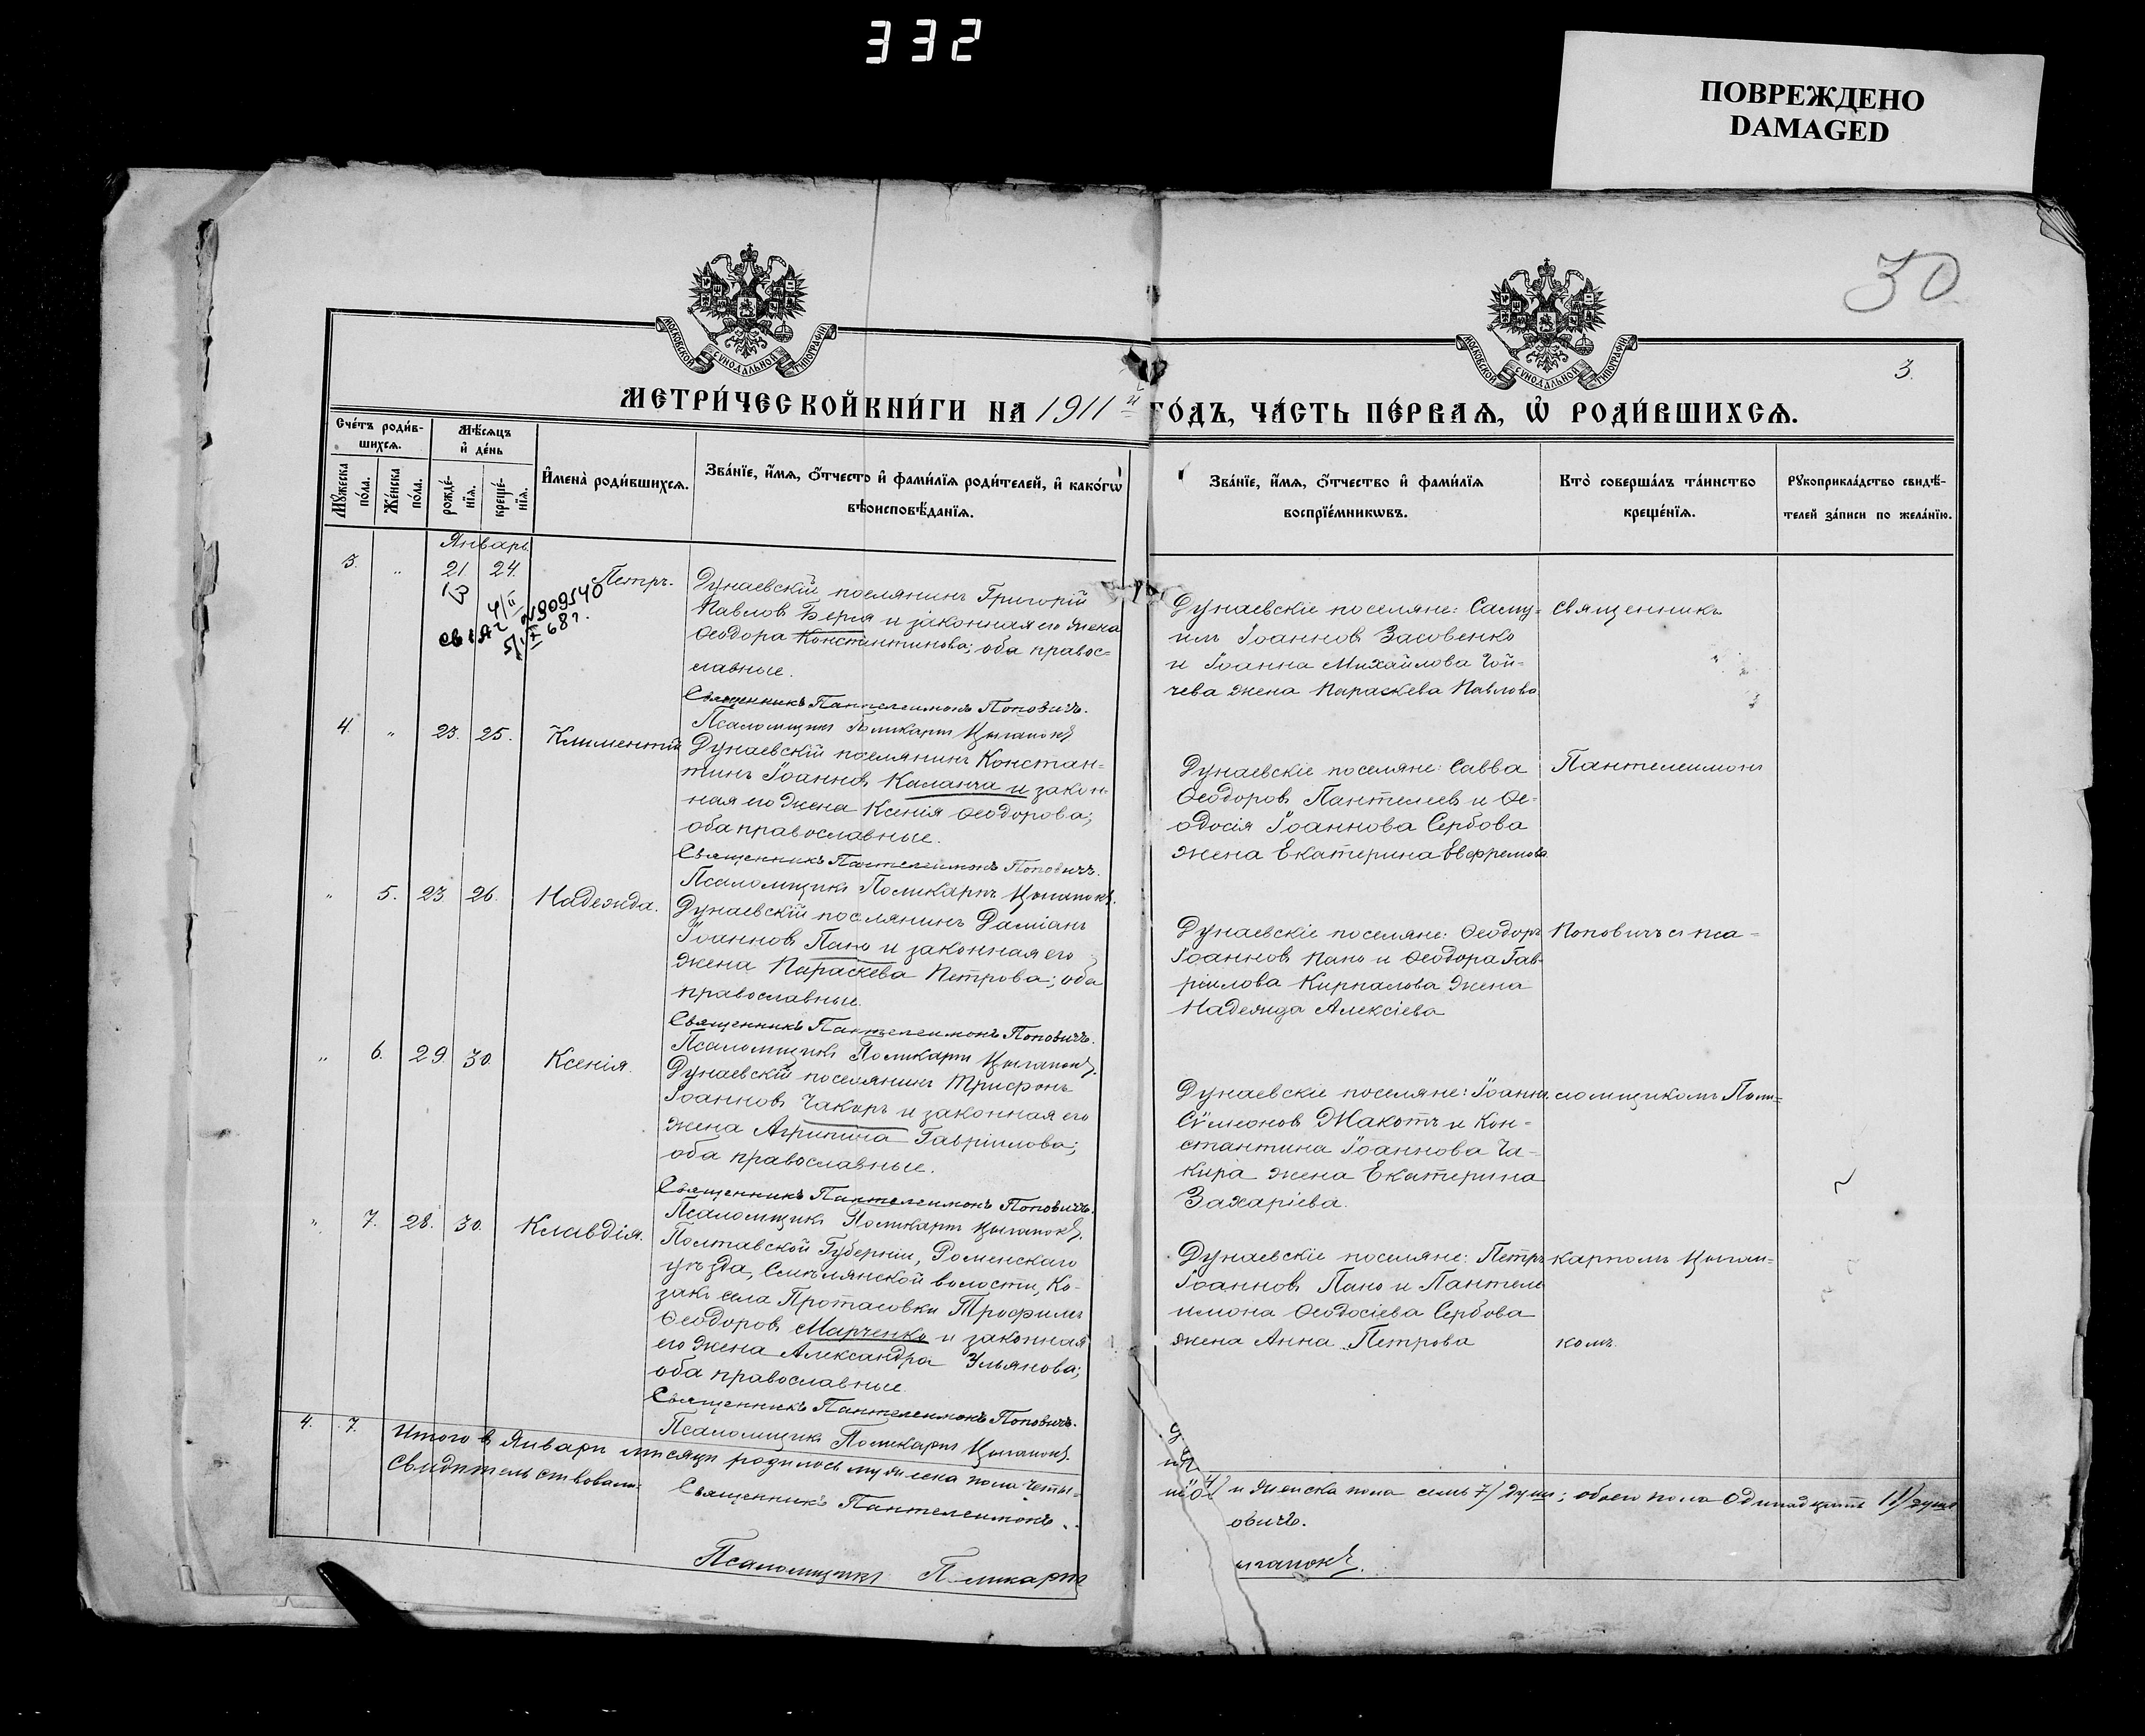 332
ПОВРЕЖДЕНО
DAMAGED
30
3.
МОСКОВСКОЙ СѴНОДАЛЬНОЙ ТИПОГРАФІИ
МОСКОВСКОЙ СѴНОДАЛЬНОЙ ТИПОГРАФІИ
МЕТРИ́ЧЕСКОЙ КНИ́ГИ НА 1911 й ГО́ДЪ, ЧА́СТЬ ПЕ́РВАѦ, Ѡ҆ РОДИ́ВШИХСѦ.
Сче́тъ роди́в-
шихсѧ.
Мꙋ́жеска по́ла.
Же́нска по́ла.
Мѣ́сѧцъ
и҆ де́нь
рожде́-
нїѧ.
креще́-
нїѧ.
И҆мена̀ роди́вшихсѧ.
Зва́нїе, и҆́мѧ, ѻ҆́тчество и҆ фами́лїѧ роди́телей, и҆ како́гѡ
вѣроисповѣ́данїѧ.
Зва́нїе, и҆́мѧ, ѻ҆́тчество и҆ фами́лїѧ
воспрїе́мникѡвъ.
Кто̀ соверша́лъ та́инство
креще́нїѧ.
Рꙋкоприкла́дство свидѣ́-
телей за́писи по жела́нїю.
Январь.
3. " 21. 24. Петръ.
Дунаевскій поселянинъ Григорій
Павловъ Берля и законная его жена
Ѳеодора Константинова; оба правос-
лавные.
Священникъ Пантелеимонъ Поповичъ.
Псаломщикъ Поликарпъ Цыганокъ
Дунаевскіе поселяне: Саму-
илъ Іоанновъ Засовенко
и Іоанна Михайлова Гой-
чева жена Параскева Павлова
Священникъ
4. " 23. 25. Климентій
Дунаевскій поселянинъ Констан-
тинъ Іоанновъ Каланча и закон-
ная его жена Ксенія Ѳеодорова;
оба православные.
Священникъ Пантелеимонъ Поповичъ.
Псаломщикъ Поликарпъ Цыганокъ.
Дунаевскіе поселяне: Савва
Ѳеодоровъ Пантелеев и Ѳе-
одосія Іоаннова Сербова
жена Екатерина Евфремова
Пантелеимонъ
" 5. 23. 26. Надежда.
Дунаевскій поселянинъ Даміанъ
Іоанновъ Пано и законная его
жена Параскева Петрова; оба
православные.
Священникъ Пантелеимонъ Поповичъ.
Псаломщикъ Поликарпъ Цыганокъ.
Дунаевскіе поселяне: Ѳеодоръ
Іоанновъ Пано и Ѳеодора Гав-
ріилова Кирналова жена
Надежда Алексіева
Поповичъ съ пса-
" 6. 29. 30. Ксенія.
Дунаевскій поселянинъ Трифонъ
Іоанновъ Чакиръ и законная его
жена Агрипина Гавріилова;
оба православные.
Священникъ Пантелеимонъ Поповичъ.
Псаломщикъ Поликарпъ Цыганокъ.
Дунаевскіе поселяне: Іоаннъ
Сѵмеоновъ Жакотъ и Кон-
стантина Іоаннова Ча-
кира жена Екатерина
Захаріева.
ломщикомъ Поли-
" 7. 28. 30. Клавдія.
Полтавской Губерніи, Роменскаго
уѣзда, Смѣлянской волости, Ко-
закъ села Протасовки Трофимъ
Ѳеодоровъ Марченко и законная
его жена Александра Ульянова;
оба православные.
Священникъ Пантелеимонъ Поповичъ.
Псаломщикъ Поликарпъ Цыганокъ.
Дунаевскіе поселяне: Петръ
Іоанновъ Пано и Пантеле
имона Ѳеодосіева Сербова
жена Анна Петрова
карпомъ Цыган-
комъ.
4. 7. Итого въ Январѣ мѣсяцѣ родилось мужеска пола четы- и женска пола семь 7/ душъ; обоего пола одинадцать 11/ душъ
Свидѣтельствовали:
Священникъ Пантелеимонъ овичъ.
Псаломщикъ Поликарпъ ыганокъ.